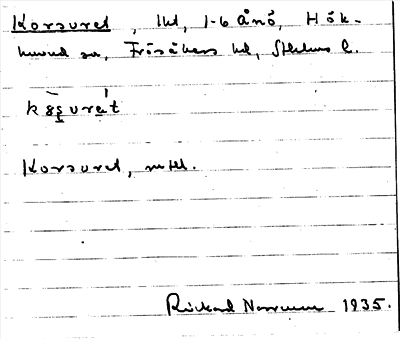 Korsuret, lht, 1-6 Ånö, Hök-
huvud sn, Frösåkers hd, Sthlms l.
Korsuret, mtl.
Rickard Norrman 1935.